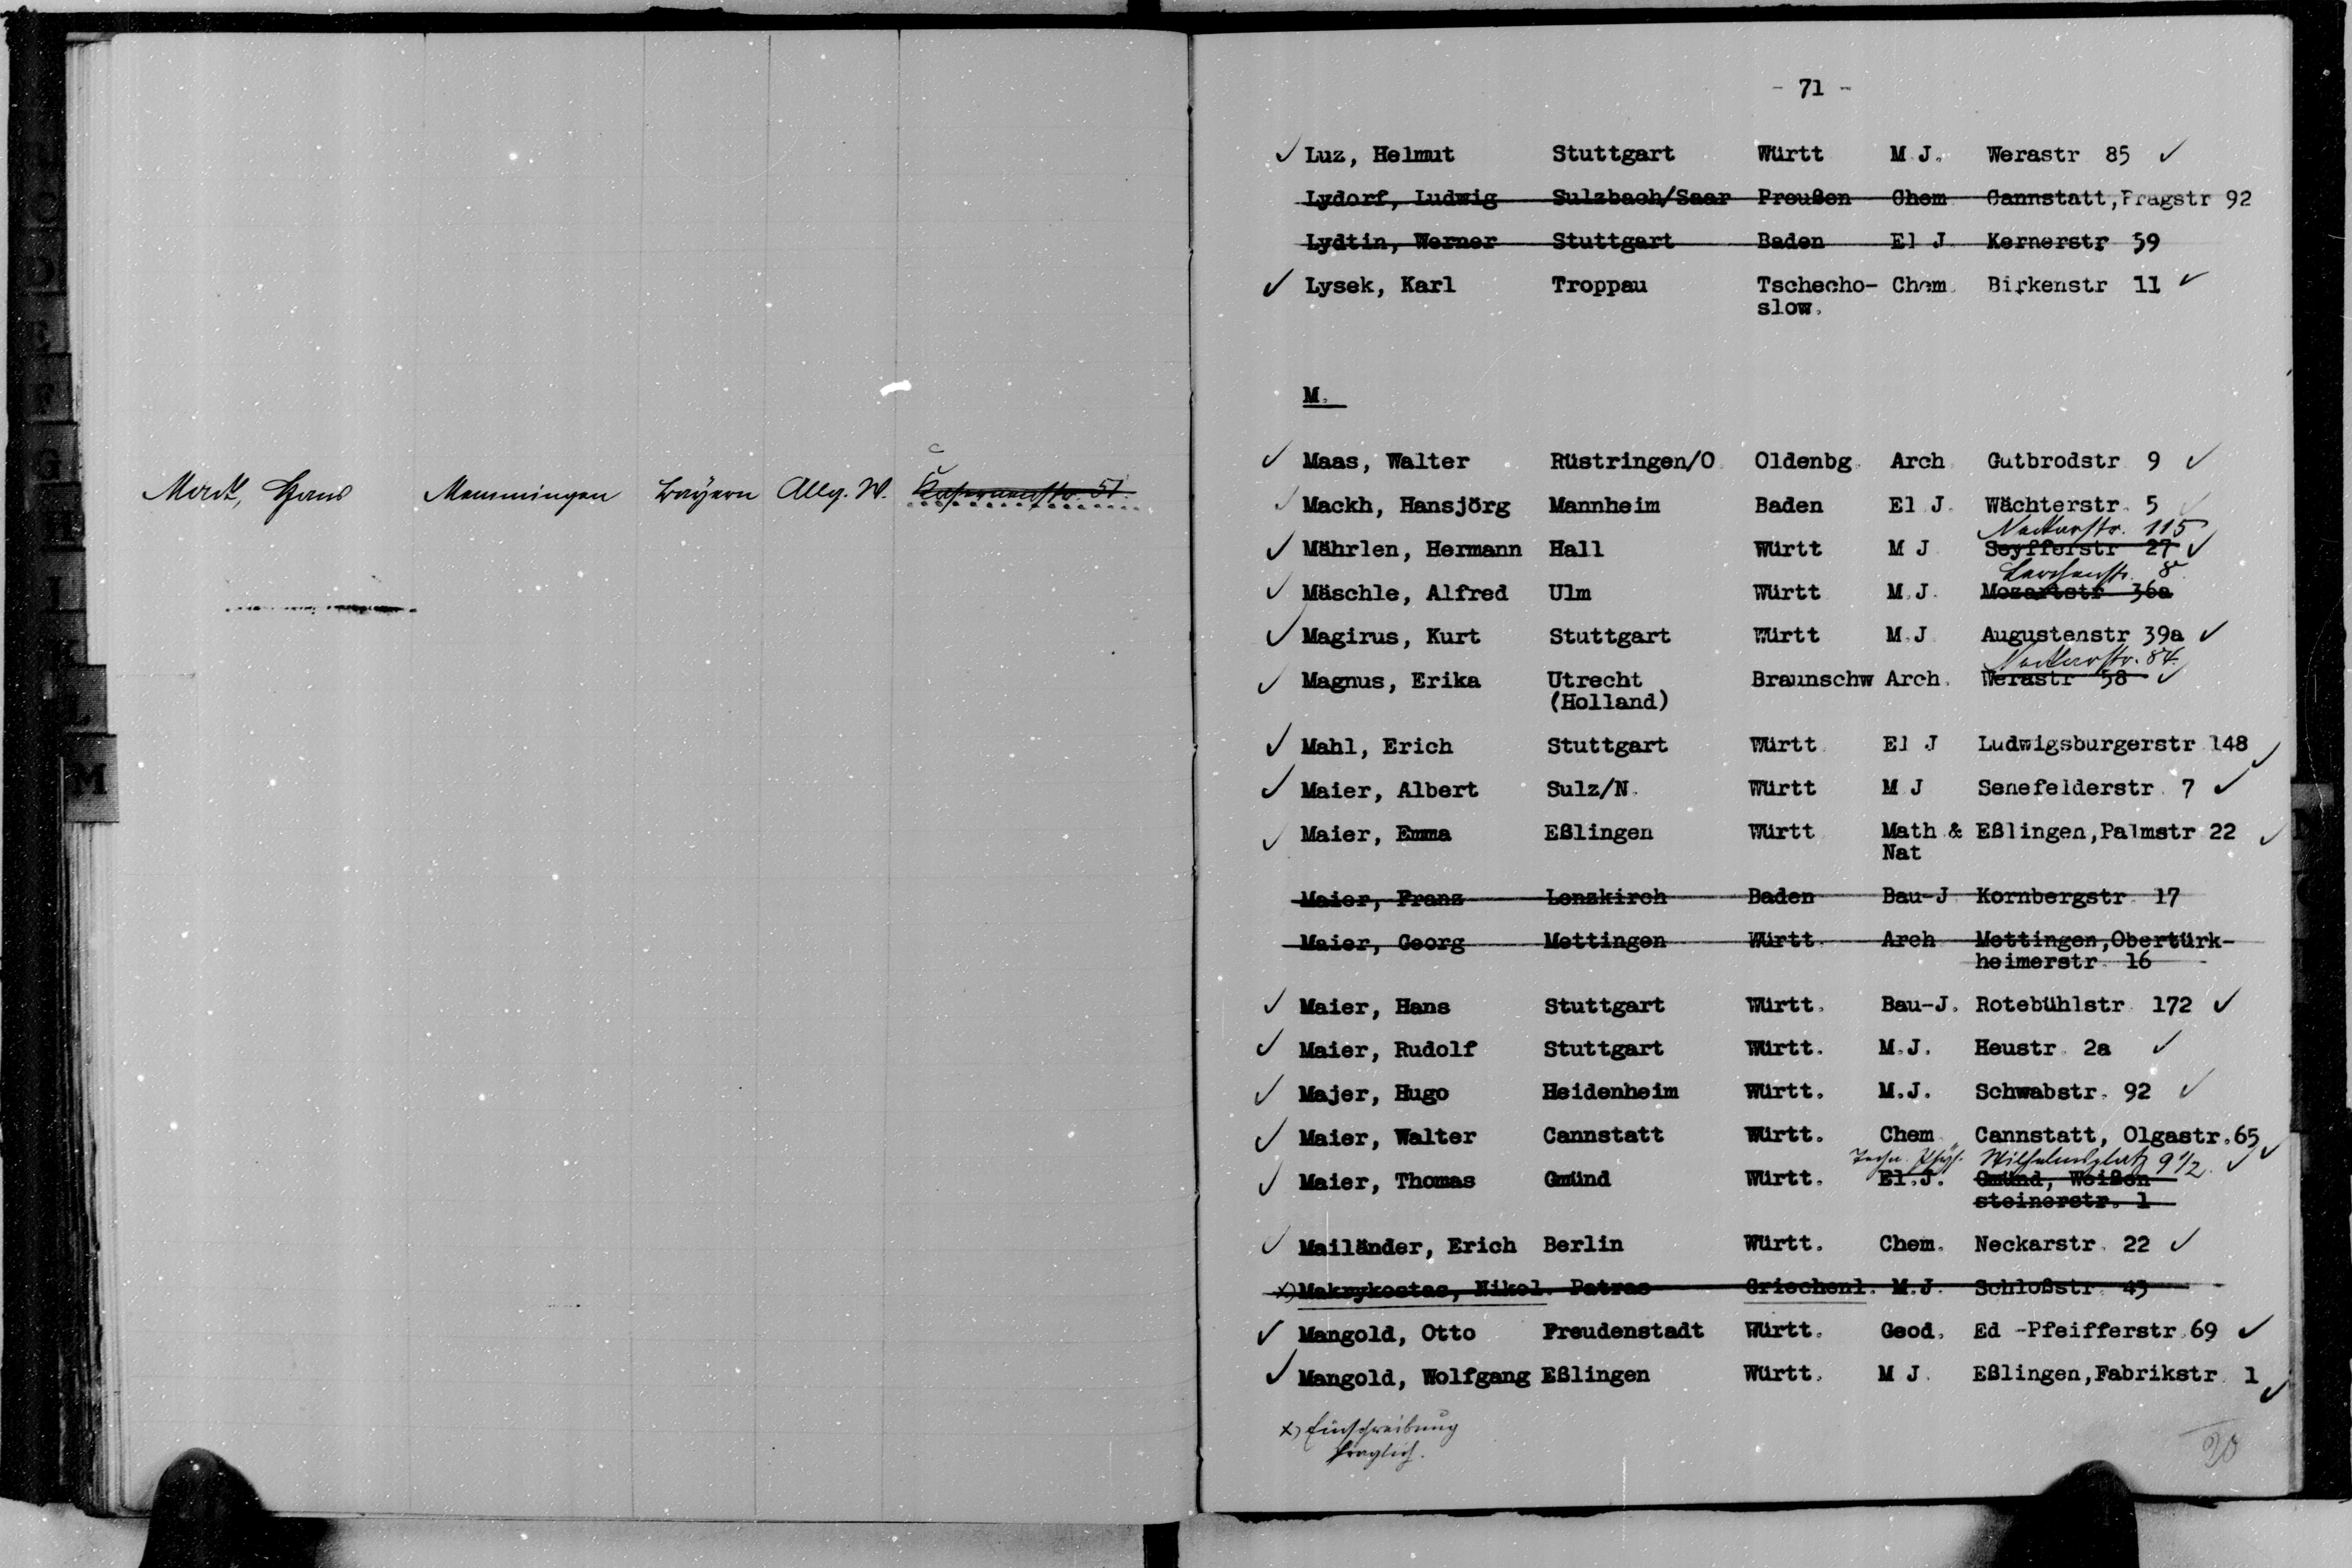 Hans Memmingen Bayern Allg. W. Kasernenstr. 51
- 71 -
Luz, Helmut Stuttgart Württ M.J. Werastr 85
Lydorf, Ludwig Sulzbach/Saar Preußen Chem Cannstatt,Pragstr 92
Lydtin, Werner Stuttgart Baden El J Kernerstr 59
Lysek, Karl Troppau Tschecho- Chem. Birkenstr 11
slow.
M.
Maas, Walter Rüstringen/O. Oldenbg. Arch Gutbrodstr 9
Mackh, Hansjörg Mannheim Baden El J. Wächterstr. 5
Neckarstr. 115
Mährlen, Hermann Hall Württ M J Seyfferstr 27
Lerchenstr. 8
Mäschle, Alfred Ulm Württ M.J. Mozartstr 36a
Magirus, Kurt Stuttgart Württ M.J Augustenstr 39a
Neckarstr. 84.
Magnus, Erika Utrecht Braunschw Arch. Werastr 58
(Holland)
Mahl, Erich Stuttgart Württ El J Ludwigsburgerstr 148
Maier, Albert Sulz/N. Württ M J Senefelderstr. 7
Maier, Emma Eßlingen Württ Math & Eßlingen,Palmstr 22
Nat
Maier, Franz Lenzkirch Baden Bau-J Kornbergstr 17
Maier, Georg Mettingen Württ. Arch Mettingen,Obertürk-
heimerstr. 16
Maier, Hans Stuttgart Württ. Bau-J. Rotebühlstr. 172
Maier, Rudolf Stuttgart Württ. M.J. Heustr. 2a
Majer, Hugo Heidenheim Württ. M.J. Schwabstr. 92
Maier, Walter Cannstatt Württ. Chem Cannstatt, Olgastr.65
Techn. Phys. Wilhelmsplatz 9 1/2
Maier, Thomas Gmünd Württ. El.J. Gmünd, Weißen
steinerstr. 1
Mailänder, Erich Berlin Württ. Chem. Neckarstr. 22
x) Makrykostas, Nikol. Patras Griechenl. M.J. Schloßstr. 45
Mangold, Otto Freudenstadt Württ. Geod. Ed -Pfeifferstr.69
Mangold, Wolfgang Eßlingen Württ. M J. Eßlingen,Fabrikstr. 1
x) Einschreibung
fraglich.
G
H
I
K
L
M